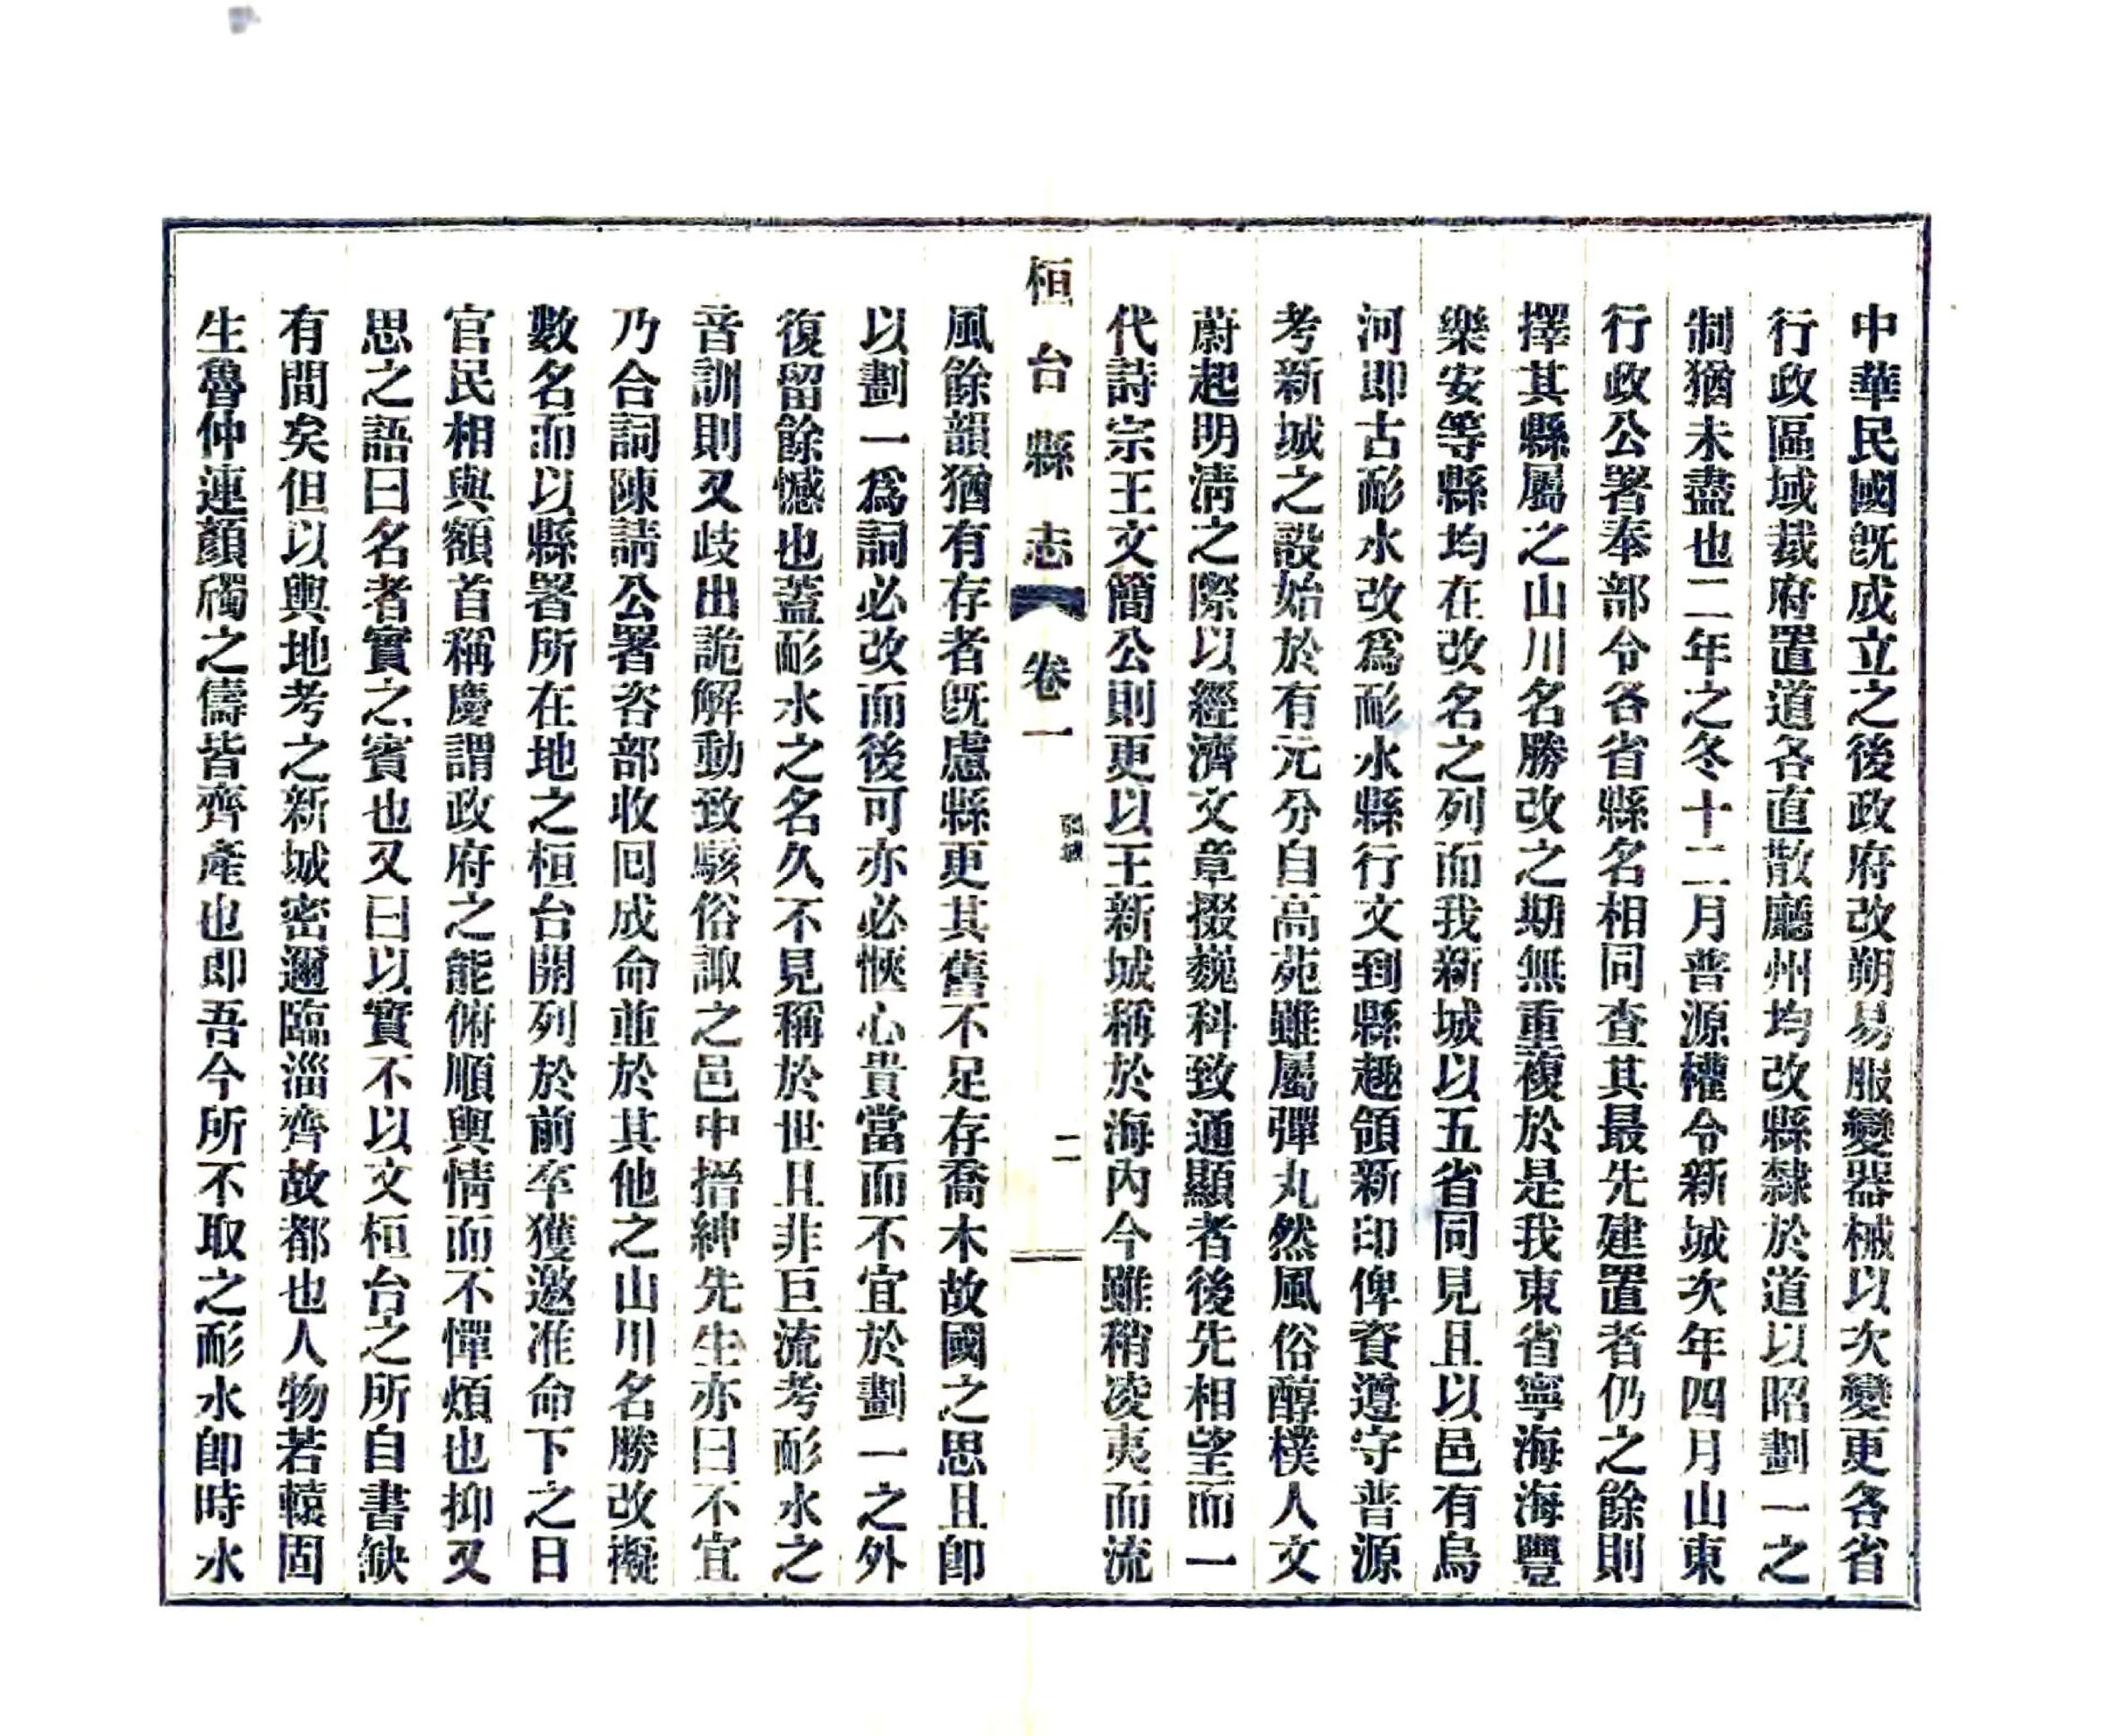 中華民國旣成立之後政府改朔易服變器械以次變更各省
行政區域裁府置道各直散廳州均改縣隸於道以昭劃一之
制猶未盡也二年之冬十二月普源權令新城次年四月山東
行政公署奉部令各省縣名相同查其最先建置者仍之餘則
擇其縣屬之山川名勝改之期無重複於是我東省寧海海豐
樂安等縣均在改名之列而我新城以五省同見且以邑有烏
河即古耏水改爲耏水縣行文到縣趣領新印俾資遵守普源
考新城之設始於有元分自高苑雖屬彈丸然風俗醇樸人文
蔚起明清之際以經濟文章掇巍科致通顯者後先相望而一
代詩宗王文簡公則更以王新城稱於海內今雖稍凌夷而流
桓台縣志 卷一 二
風餘韻猶有存者旣慮縣更其舊不足存喬木故國之思且卽
以劃一爲詞必改而後可亦必愜心貴當而不宜於劃一之外
復留餘憾也蓋耏水之名久不見稱於世且非巨流考耏水之
音訓則又歧出詭解動致駭俗諏之邑中搢紳先生亦曰不宜
乃合詞陳請公署咨部收囘成命並於其他之山川名勝改擬
數名而以縣署所在地之桓台開列於前卒獲邀准命下之日
官民相與額首稱慶謂政府之能俯順輿情而不憚煩也抑又
思之語曰名者實之賓也又曰以實不以文桓台之所自書缺
有間矣但以輿地考之新城密邇臨淄齊故都也人物若轅固
生魯仲連顏斶之儔皆齊產也即吾今所不取之耏水卽時水